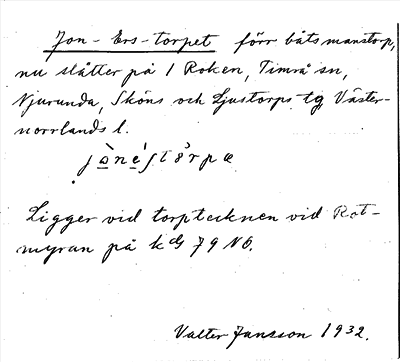 Jon-Ers-torpet förr båtsmanstorp,
nu slåtter på 1 Roken, Timrå sn,
Njurunda, Sköns och Ljustorps tg Väster-
norrlands l.
Ligger vid torptecknen vid Rot-
myran på kbl 79 NO.
Valter Jansson 1932.